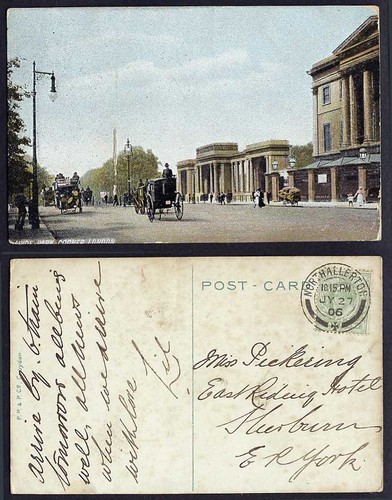 HYDE PARK CORNER, LONDON
POST-CARD
NORTHALLERTON
10.15 PM
JY 27
06
P. P. & P. Cº, Croydon
arrive by 6 train
tomorrow all being
well all news
when we arrive
with love
Lil
Miss Pickering
East Riding Hotel
Sherburn
E R York